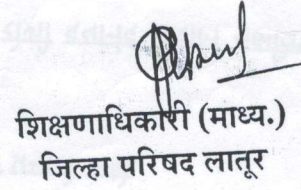 शिक्षणाधिकारी (माध्य.)
जिल्हा परिषद लातूर